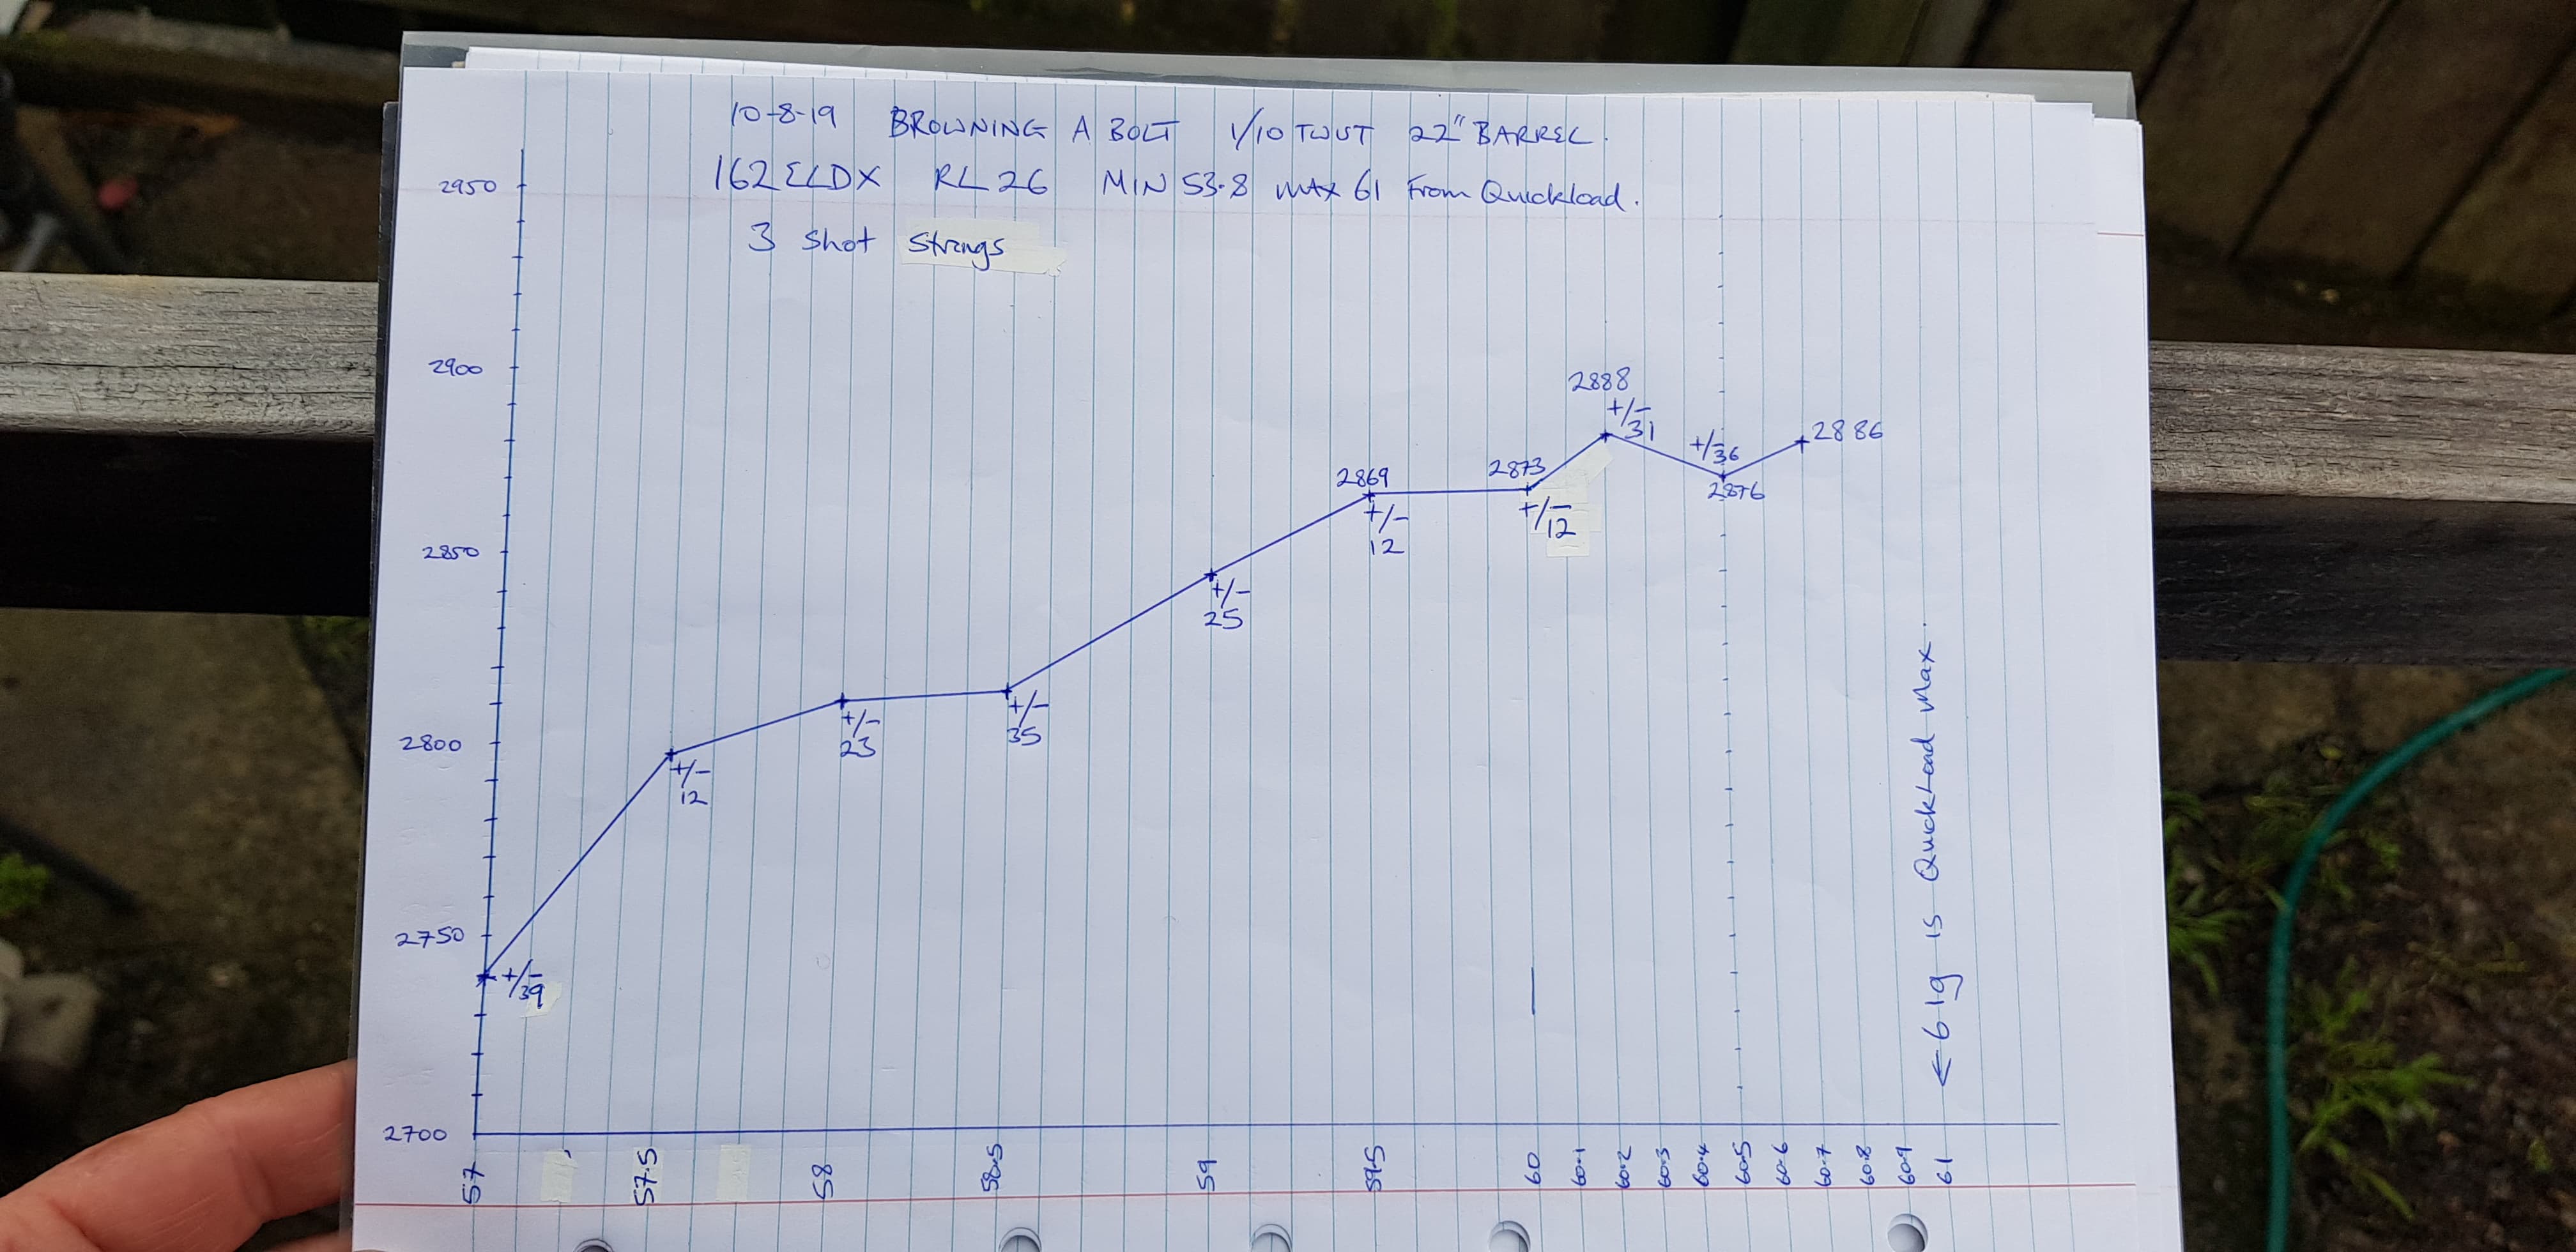 10-8-19 BROWNING A BOLT 1/10 TWIST 22" BARREL.
162 ELDX RL 26 MIN 53.8 MAX 61 From Quickload.
3 Shot Strings
2950
2900
2850
2800
2750
2700
+/- 39
+/- 12
+/- 23
+/- 35
+/- 25
2869
+/- 12
2873
+/- 12
2888
+/- 31
+/- 36
2876
2886
← 61g is Quickload Max.
57
57.5
58
58.5
59
59.5
60
60.1
60.2
60.3
60.4
60.5
60.6
60.7
60.8
60.9
61